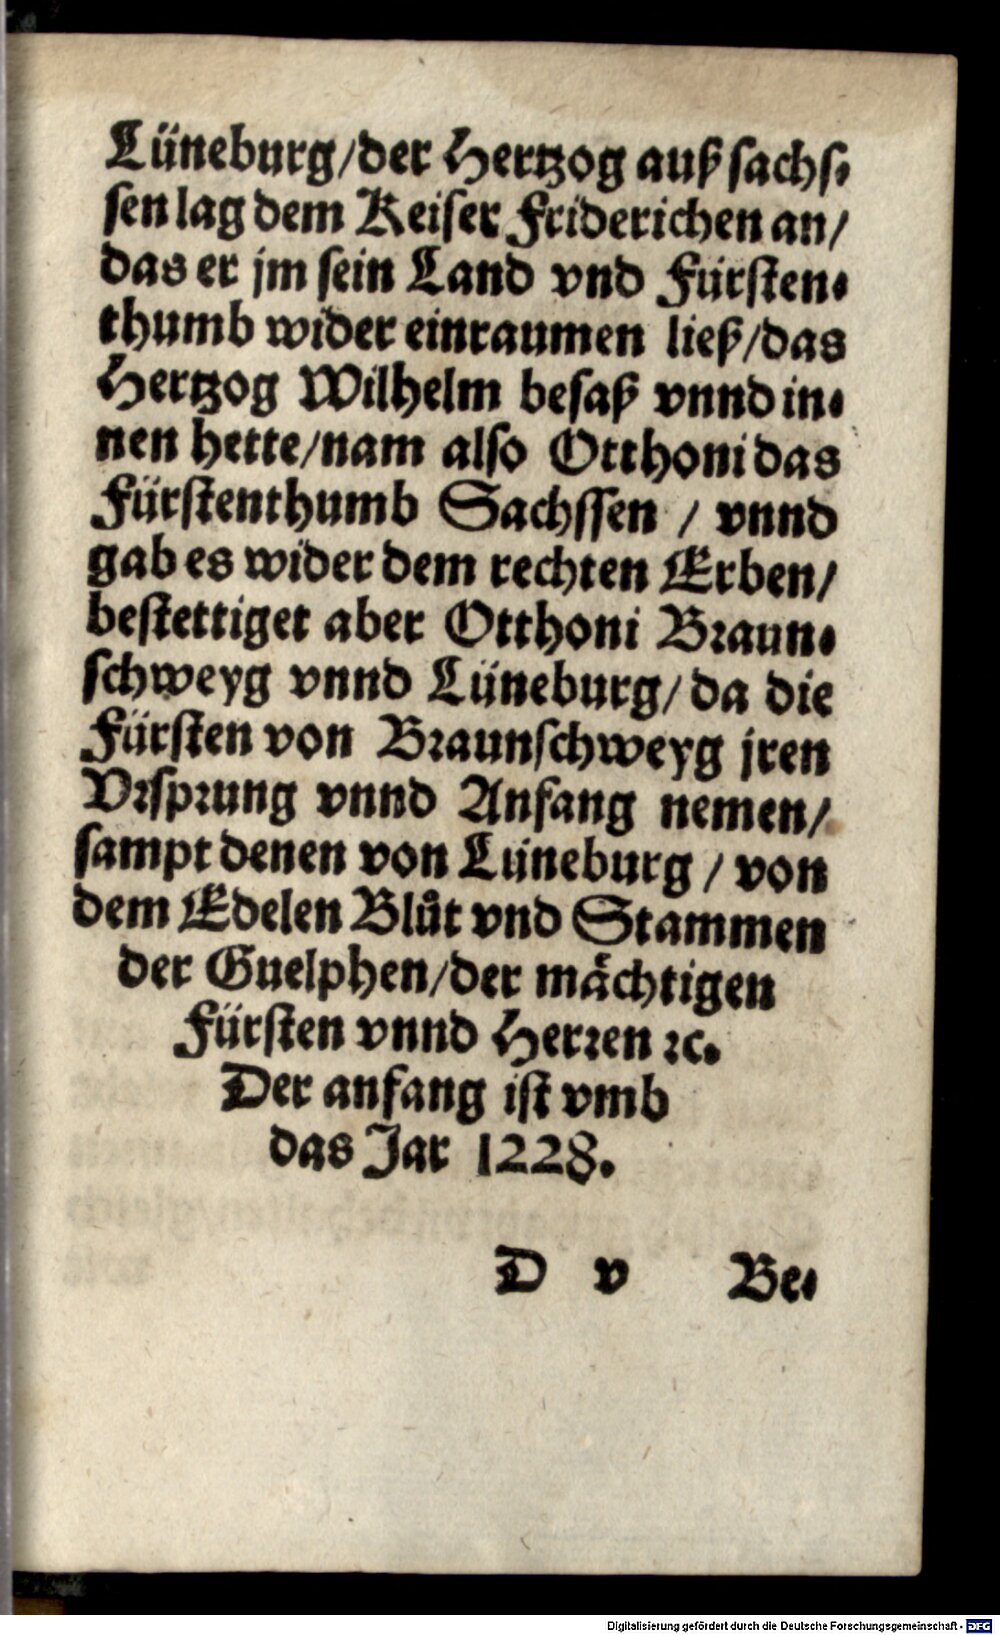 Lüneburg/der Hertzog auß sachs-
sen lag dem Keiser Friderichen an/
das er jm sein Land vnd Fürsten-
thumb wider einraumen ließ/das
Hertzog Wilhelm besaß vnnd in-
nen hette/nam also Otthoni das
Fürstenthumb Sachssen / vnnd
gab es wider dem rechten Erben/
bestettiget aber Otthoni Braun-
schweyg vnnd Lüneburg/ da die
Fürsten von Braunschweyg jren
Vrsprung vnnd Anfang nemen/
sampt denen von Lüneburg / von
dem Edelen Blůt vnd Stammen
der Guelphen/der mächtigen
Fürsten vnnd Herren ꝛc.
Der anfang ist vmb
das Jar 1228.
D v Be-
Digitalisierung gefördert durch die Deutsche Forschungsgemeinschaft - DFG